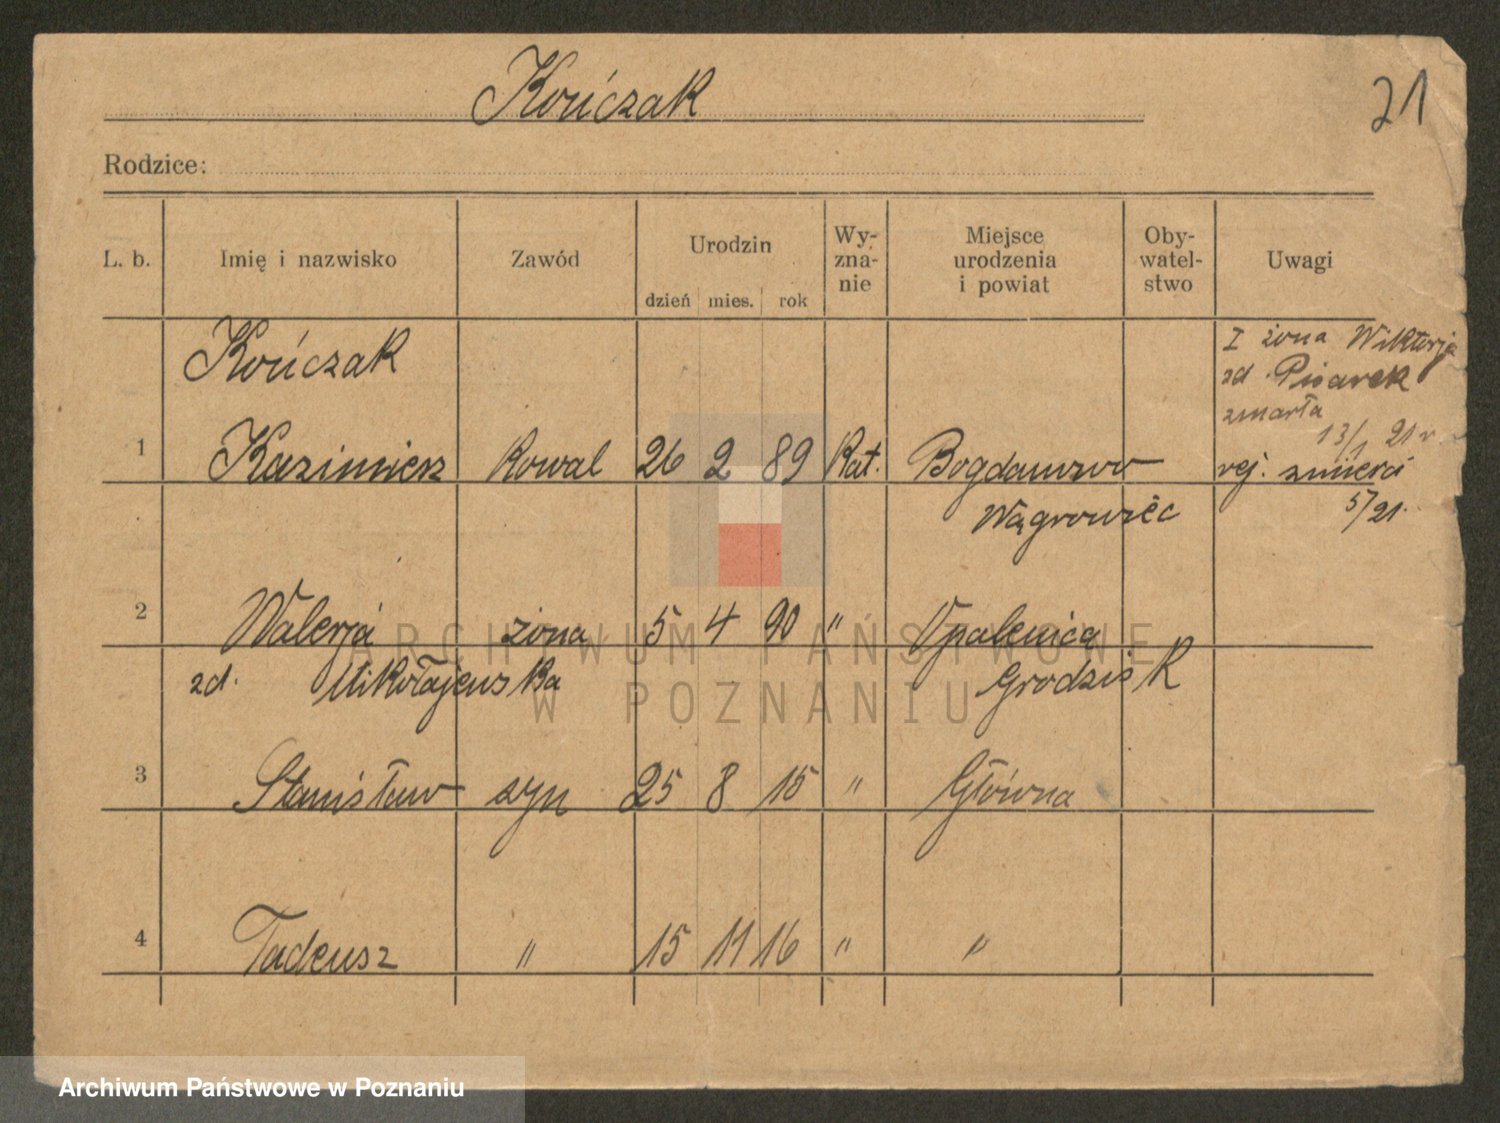 Kończak
21
Rodzice:
L. b. Imię i nazwisko Zawód Urodzin dzień mies. rok Wy-zna-nie Miejsce urodzenia i powiat Oby-watel-stwo Uwagi
Kończak
I żona Wiktorja
zd. Pisarek
zmarła
13/1 21 r.
1 Kazimierz kowal 26 2 89 Kat. Bogdanowo rej. zmierci
Wągrowiec 5/21.
2 Walerja żona 5 4 90 " Opalenica
zd. Mikołajewska Grodzisk
3 Stanisław syn 25 8 15 " Główna
4 Tadeusz " 15 11 16 " "
ARCHIWUM PAŃSTWOWE
W POZNANIU
Archiwum Państwowe w Poznaniu